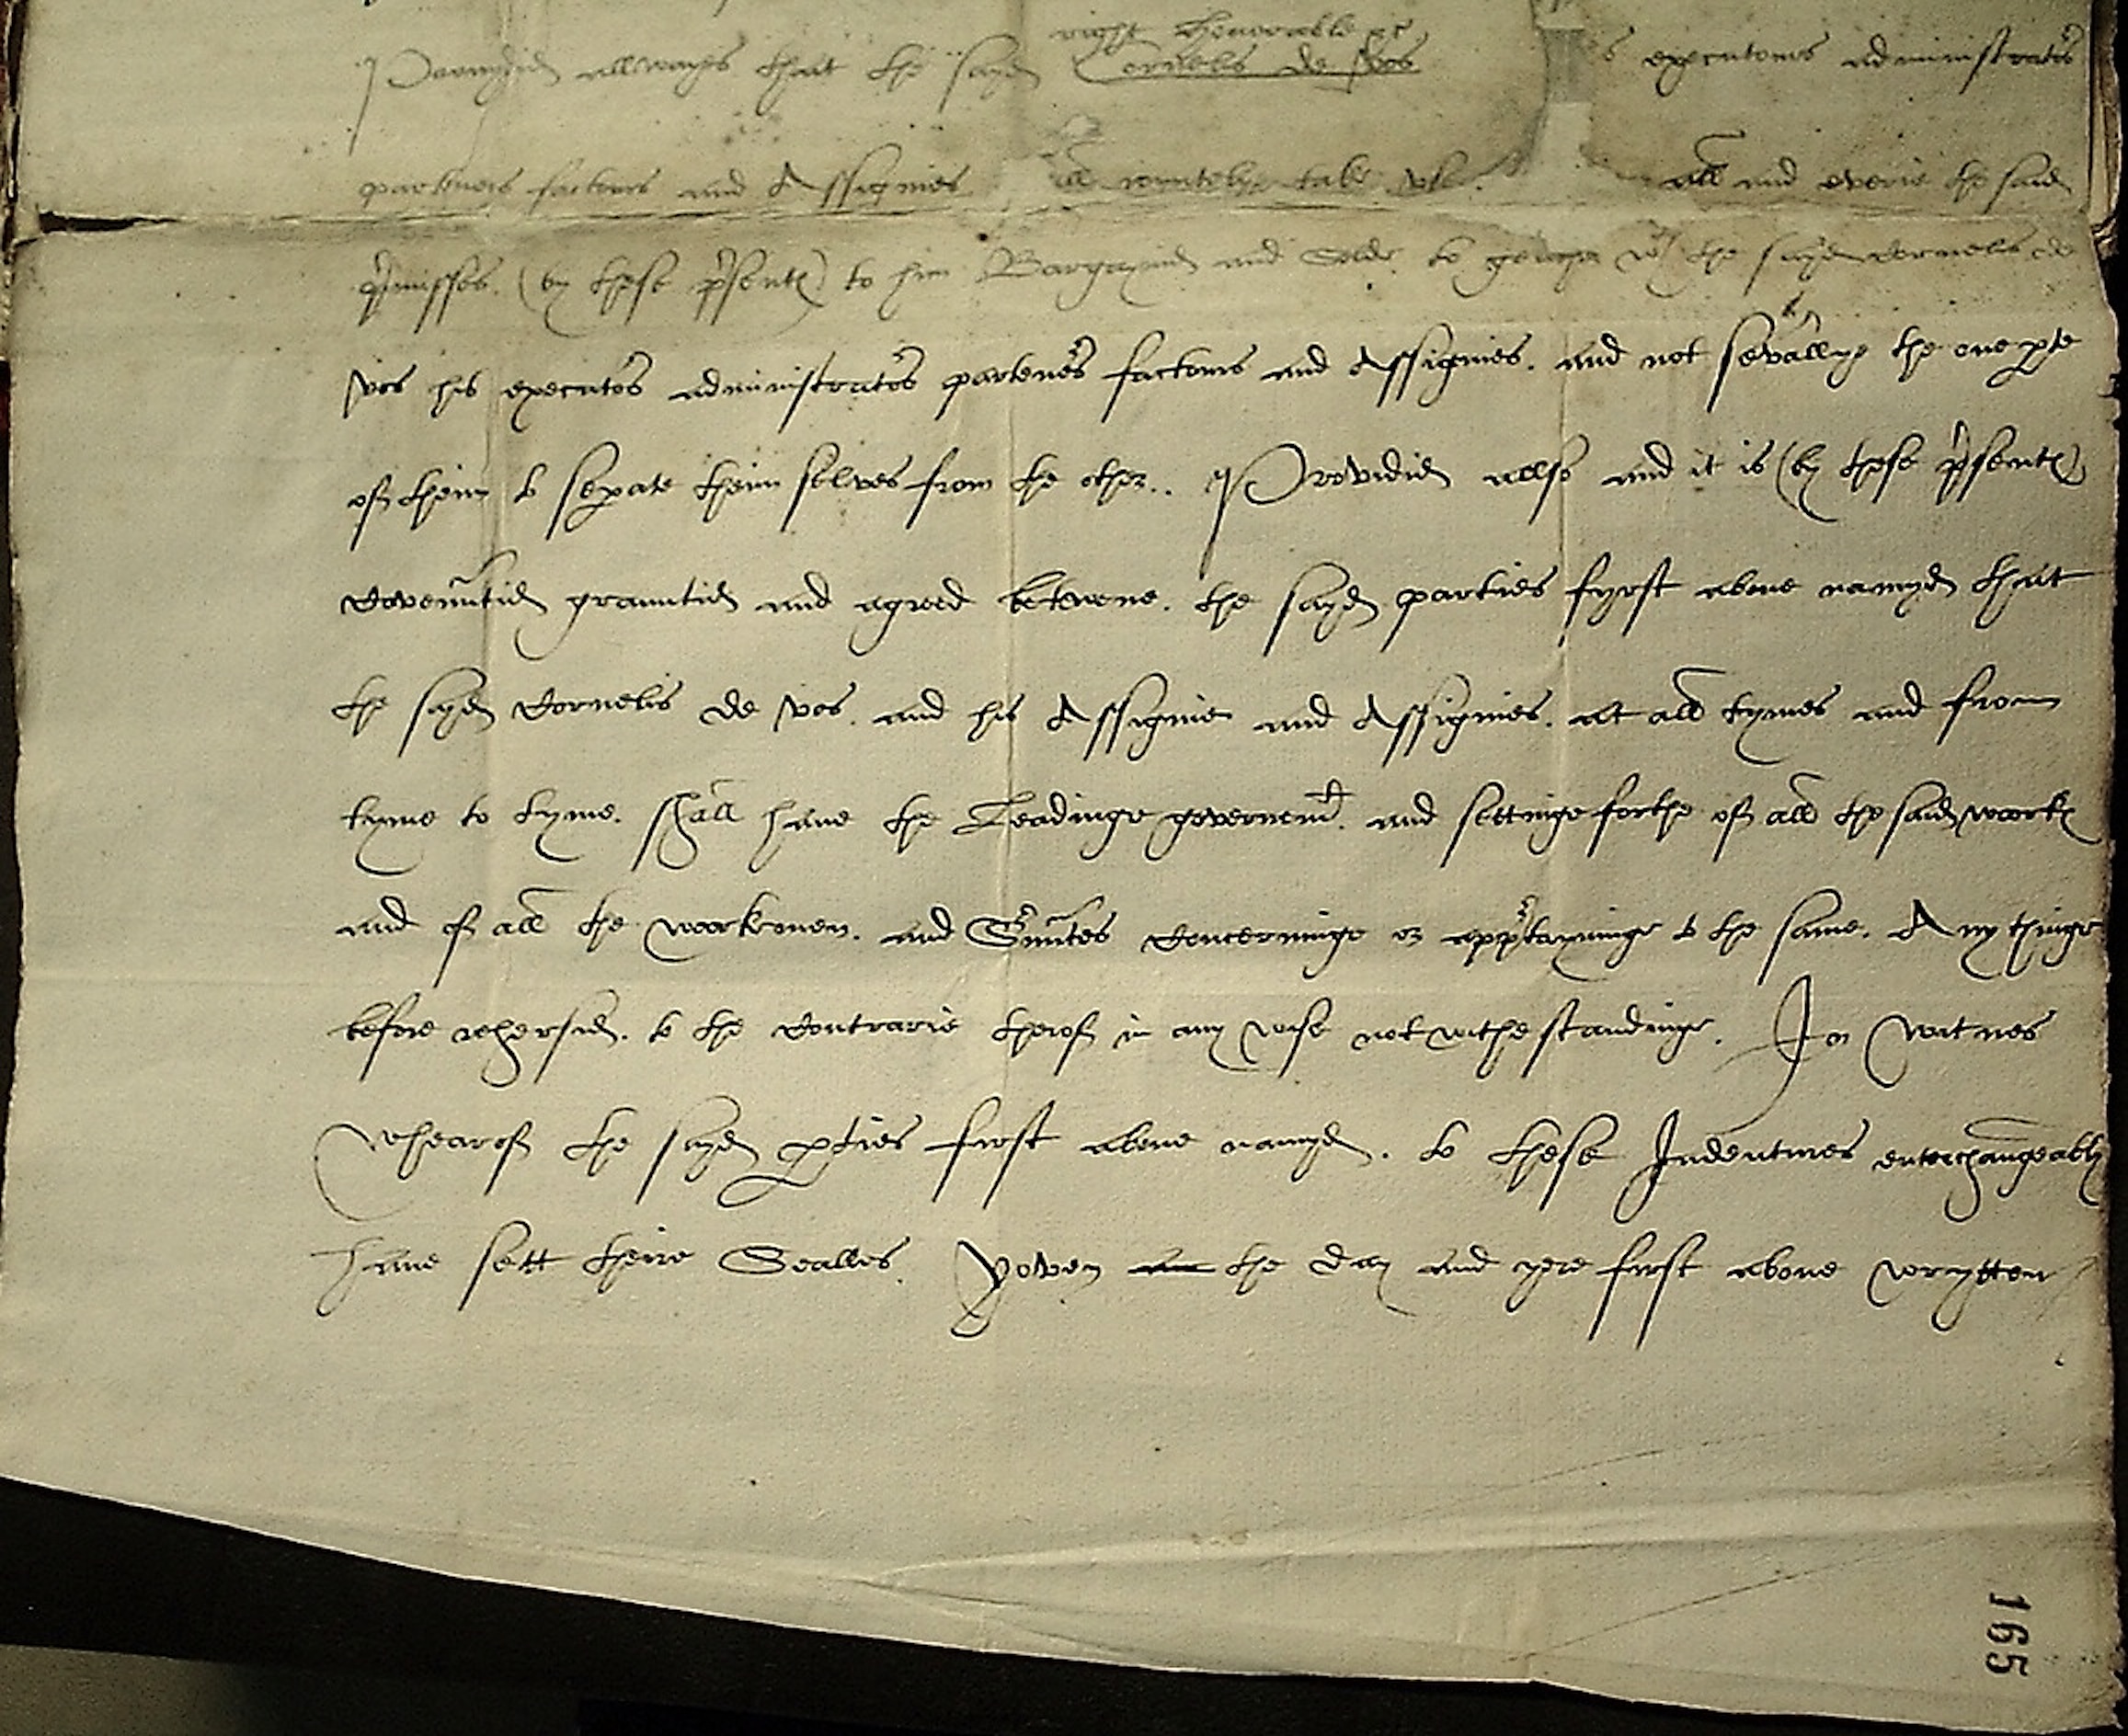 right honorable
Provydid allwayes that the sayd Cornelis de Vos executours administrators
parteners factours and Assignies all and everie the said
premisses (by these presents) to him Bargayned and Solde, to the sayd Cornelis de
Vos his executors administrators parteners factours and Assignies. and not severallye the one parte
of theim to separate theim selves from the other. Providid allso and it is (by these presents)
Covenantid grauntid and agreed betwene, the sayd parties fyrst above namyd that
the sayd Cornelis de Vos, and his Assignie and Assignies, at all tymes and from
tyme to tyme, shall have the Leadinge governemt, and settinge forthe of all the said workes
and of all the workemen, and Servntes Concerninge or appertayninge to the same, Any thinge
before rehersid, to the Contrarie therof in any wise not withe standinge. In witnes
whearof the sayd parties first above namyd, to these Indentures enterchangeably
have sett theire Sealles. Yoven the day and yere first above wrytten
165